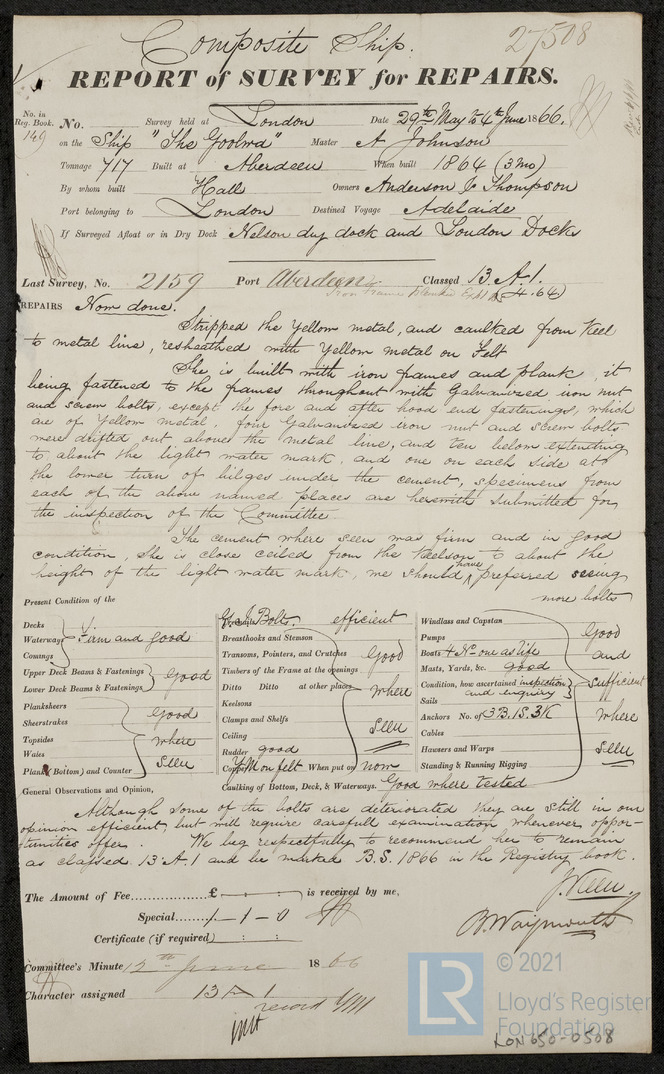 Composite Ship.
27508
REPORT of SURVEY for REPAIRS.
No. in Reg. Book. 149
No. Survey held at London Date 29th May to 4th June 1866.
on the Ship "The Goolwa" Master A Johnson
Tonnage 717 Built at Aberdeen When built 1864 (3mo)
By whom built Hall Owners Anderson & Thompson
Port belonging to London Destined Voyage Adelaide
If Surveyed Afloat or in Dry Dock Nelson dry dock and London Docks
Last Survey, No. 2159 Port Aberdeen Classed 13 A.1.
Iron Frame Planked (4.64)
REPAIRS Now done.
Stripped the Yellow metal, and caulked from Keel
to metal line, resheathed with Yellow metal on Felt
She is built with iron frames and plank, it
being fastened to the frames throughout with Galvanized iron nut
and screw bolts, except the fore and after hood end fastenings, which
are of Yellow metal, four Galvanized iron nut and screw bolts
were drifted out above the metal line, and ten below extending
to about the light water mark, and one on each side at
the lower turn of bilges under the cement, specimens from
each of the above named places are herewith submitted for
the inspection of the Committee
The cement where seen was firm and in good
condition, she is close ceiled from the Keelson to about the
height of the light water mark, we should have preferred seeing
more bolts
Present Condition of the
Decks
Waterways Firm and good
Comings
Upper Deck Beams & Fastenings
Lower Deck Beams & Fastenings Good
Planksheers Good
Sheerstrakes
Topsides where
Wales
Plank (Bottom) and Counter seen
G. I. Bolts. efficient
Breasthooks and Stemson
Transoms, Pointers, and Crutches Good
Timbers of the Frame at the openings
Ditto Ditto at other places where
Keelsons
Clamps and Shelfs
Ceiling seen
Rudder good
Copper YM on felt When put on now
Caulking of Bottom, Deck, & Waterways. Good where tested
Windlass and Capstan Good
Pumps
Boats 4 No. one as life and
Masts, Yards, &c. good
Condition, how ascertained inspection and enquiry sufficient
Sails
Anchors No. of 3B. 1S. 3K where
Cables
Hawsers and Warps seen
Standing & Running Rigging
General Observations and Opinion,
Although some of the bolts are deteriorated they are still in our
opinion efficient, but will require carefull examination whenever oppor-
tunities offer. We beg respectfully to recommend her to remain
as classed 13 A.1 and be marked B.S. 1866 in the Registry book.
The Amount of Fee £ : : is received by me,
Special 1-1-0
Certificate (if required) : :
B. Waymouth
Committee's Minute 12th June 1866
Character assigned 13 A 1
record
LR © 2021
Lloyd's Register
Foundation
LON650-0508